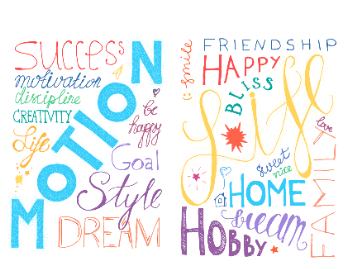 SUCCESS
motivation
discipline
CREATIVITY
Life
MOTION
be
happy
Goal
Style
DREAM
smile
FRIENDSHIP
HAPPY
BLISS
Life
love
FAMILY
sweet
nice
HOME
dream
HOBBY